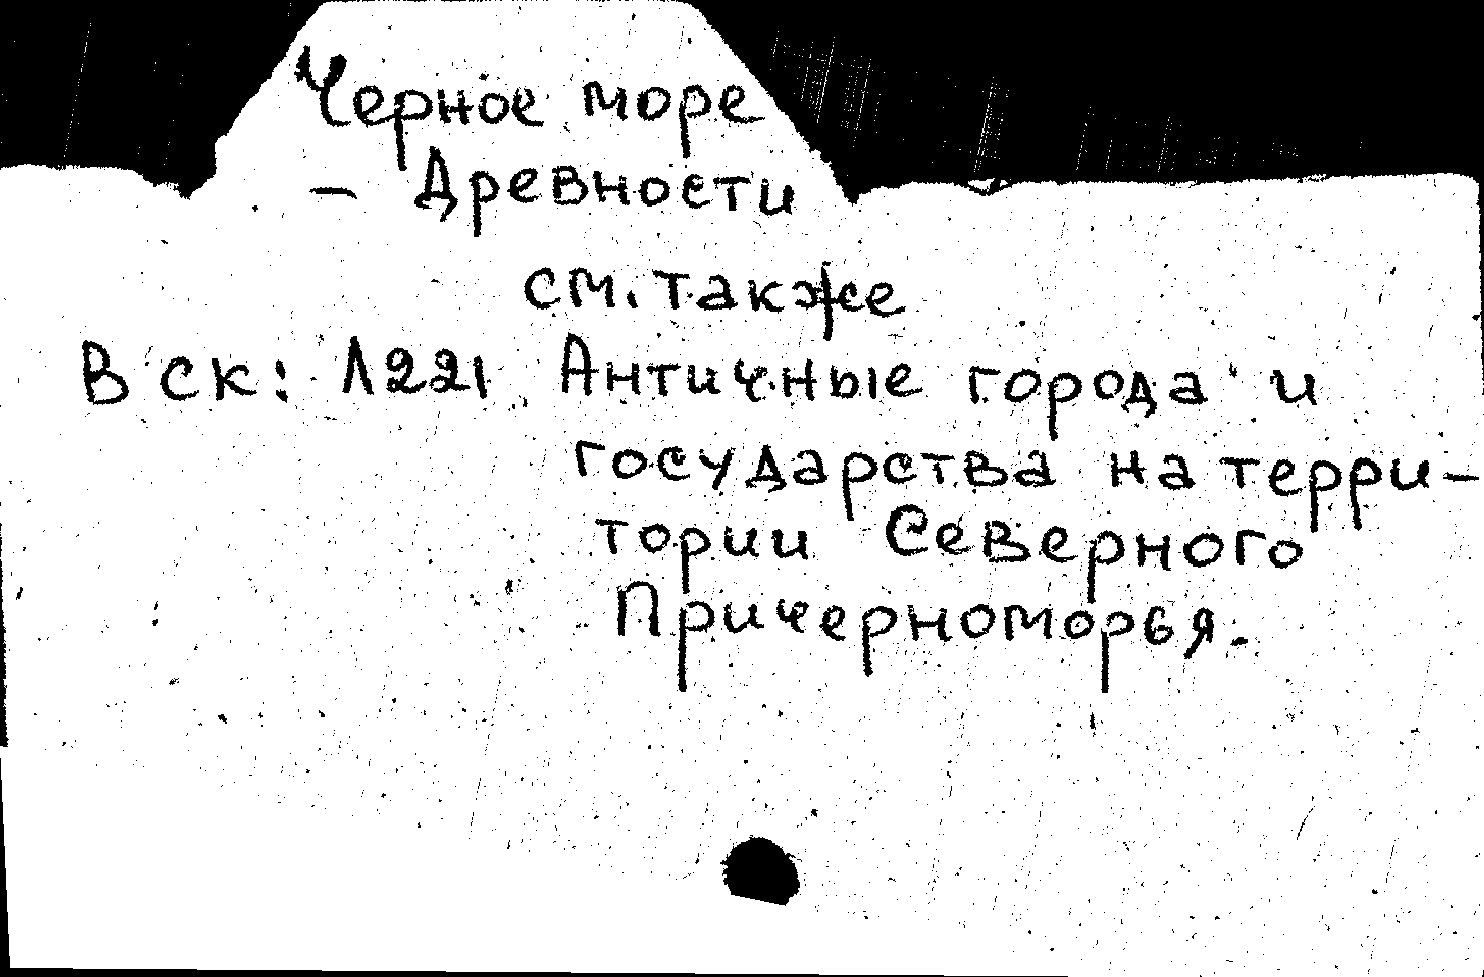 Черное море
– Древности
см. также
В ск: Л221 Античные города и
государства на терри-
тории Северного
Причерноморья.